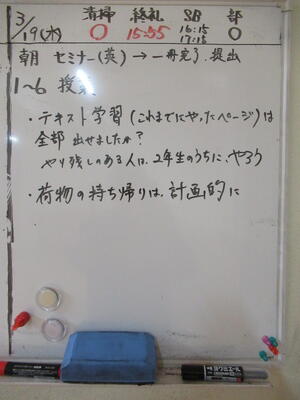 3/19(水) 清掃 ○ 終礼 15:55 SB 16:15 17:15 部 ○
朝 セミナー(英) → 一冊完了.提出
1~6 授業
・テキスト学習(これまでにやったページ)は
全部 出せましたか?
やり残しのある人は、2年生のうちに、やろう
・荷物の持ち帰りは、計画的に